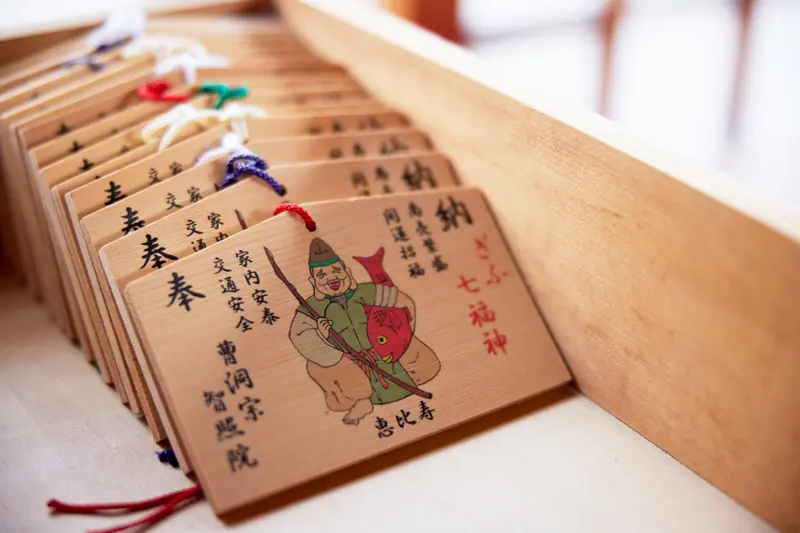 ぎふ
七福神
納
商売繁盛
開運招福
家内安泰
交通安全
奉
曹洞宗
智照院
恵比寿
納
家内
交通
奉
奉
奉